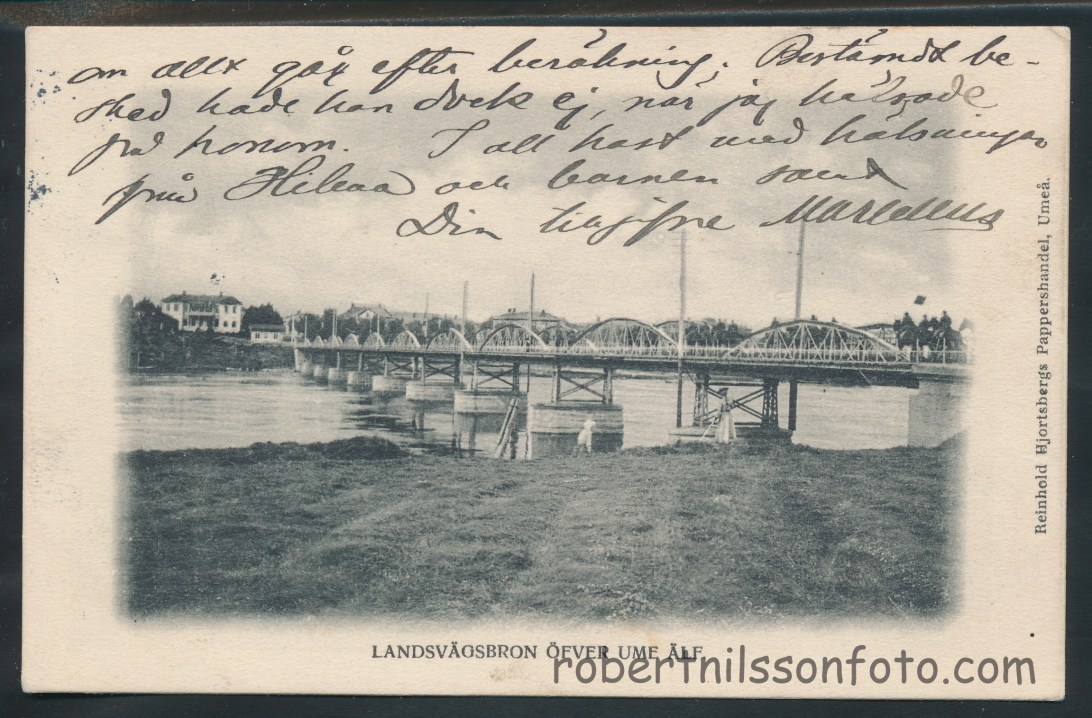 om allt går efter beräkning. Bestämdt be-
sked hade han dock ej, när jag hälsade
på honom. I all hast med hälsningar
från Hilda och barnen samt
Din tillgifne
LANDSVÄGSBRON ÖFVER UME ÄLF.
robertnilssonfoto.com
Reinhold Hjortsbergs Pappershandel, Umeå.